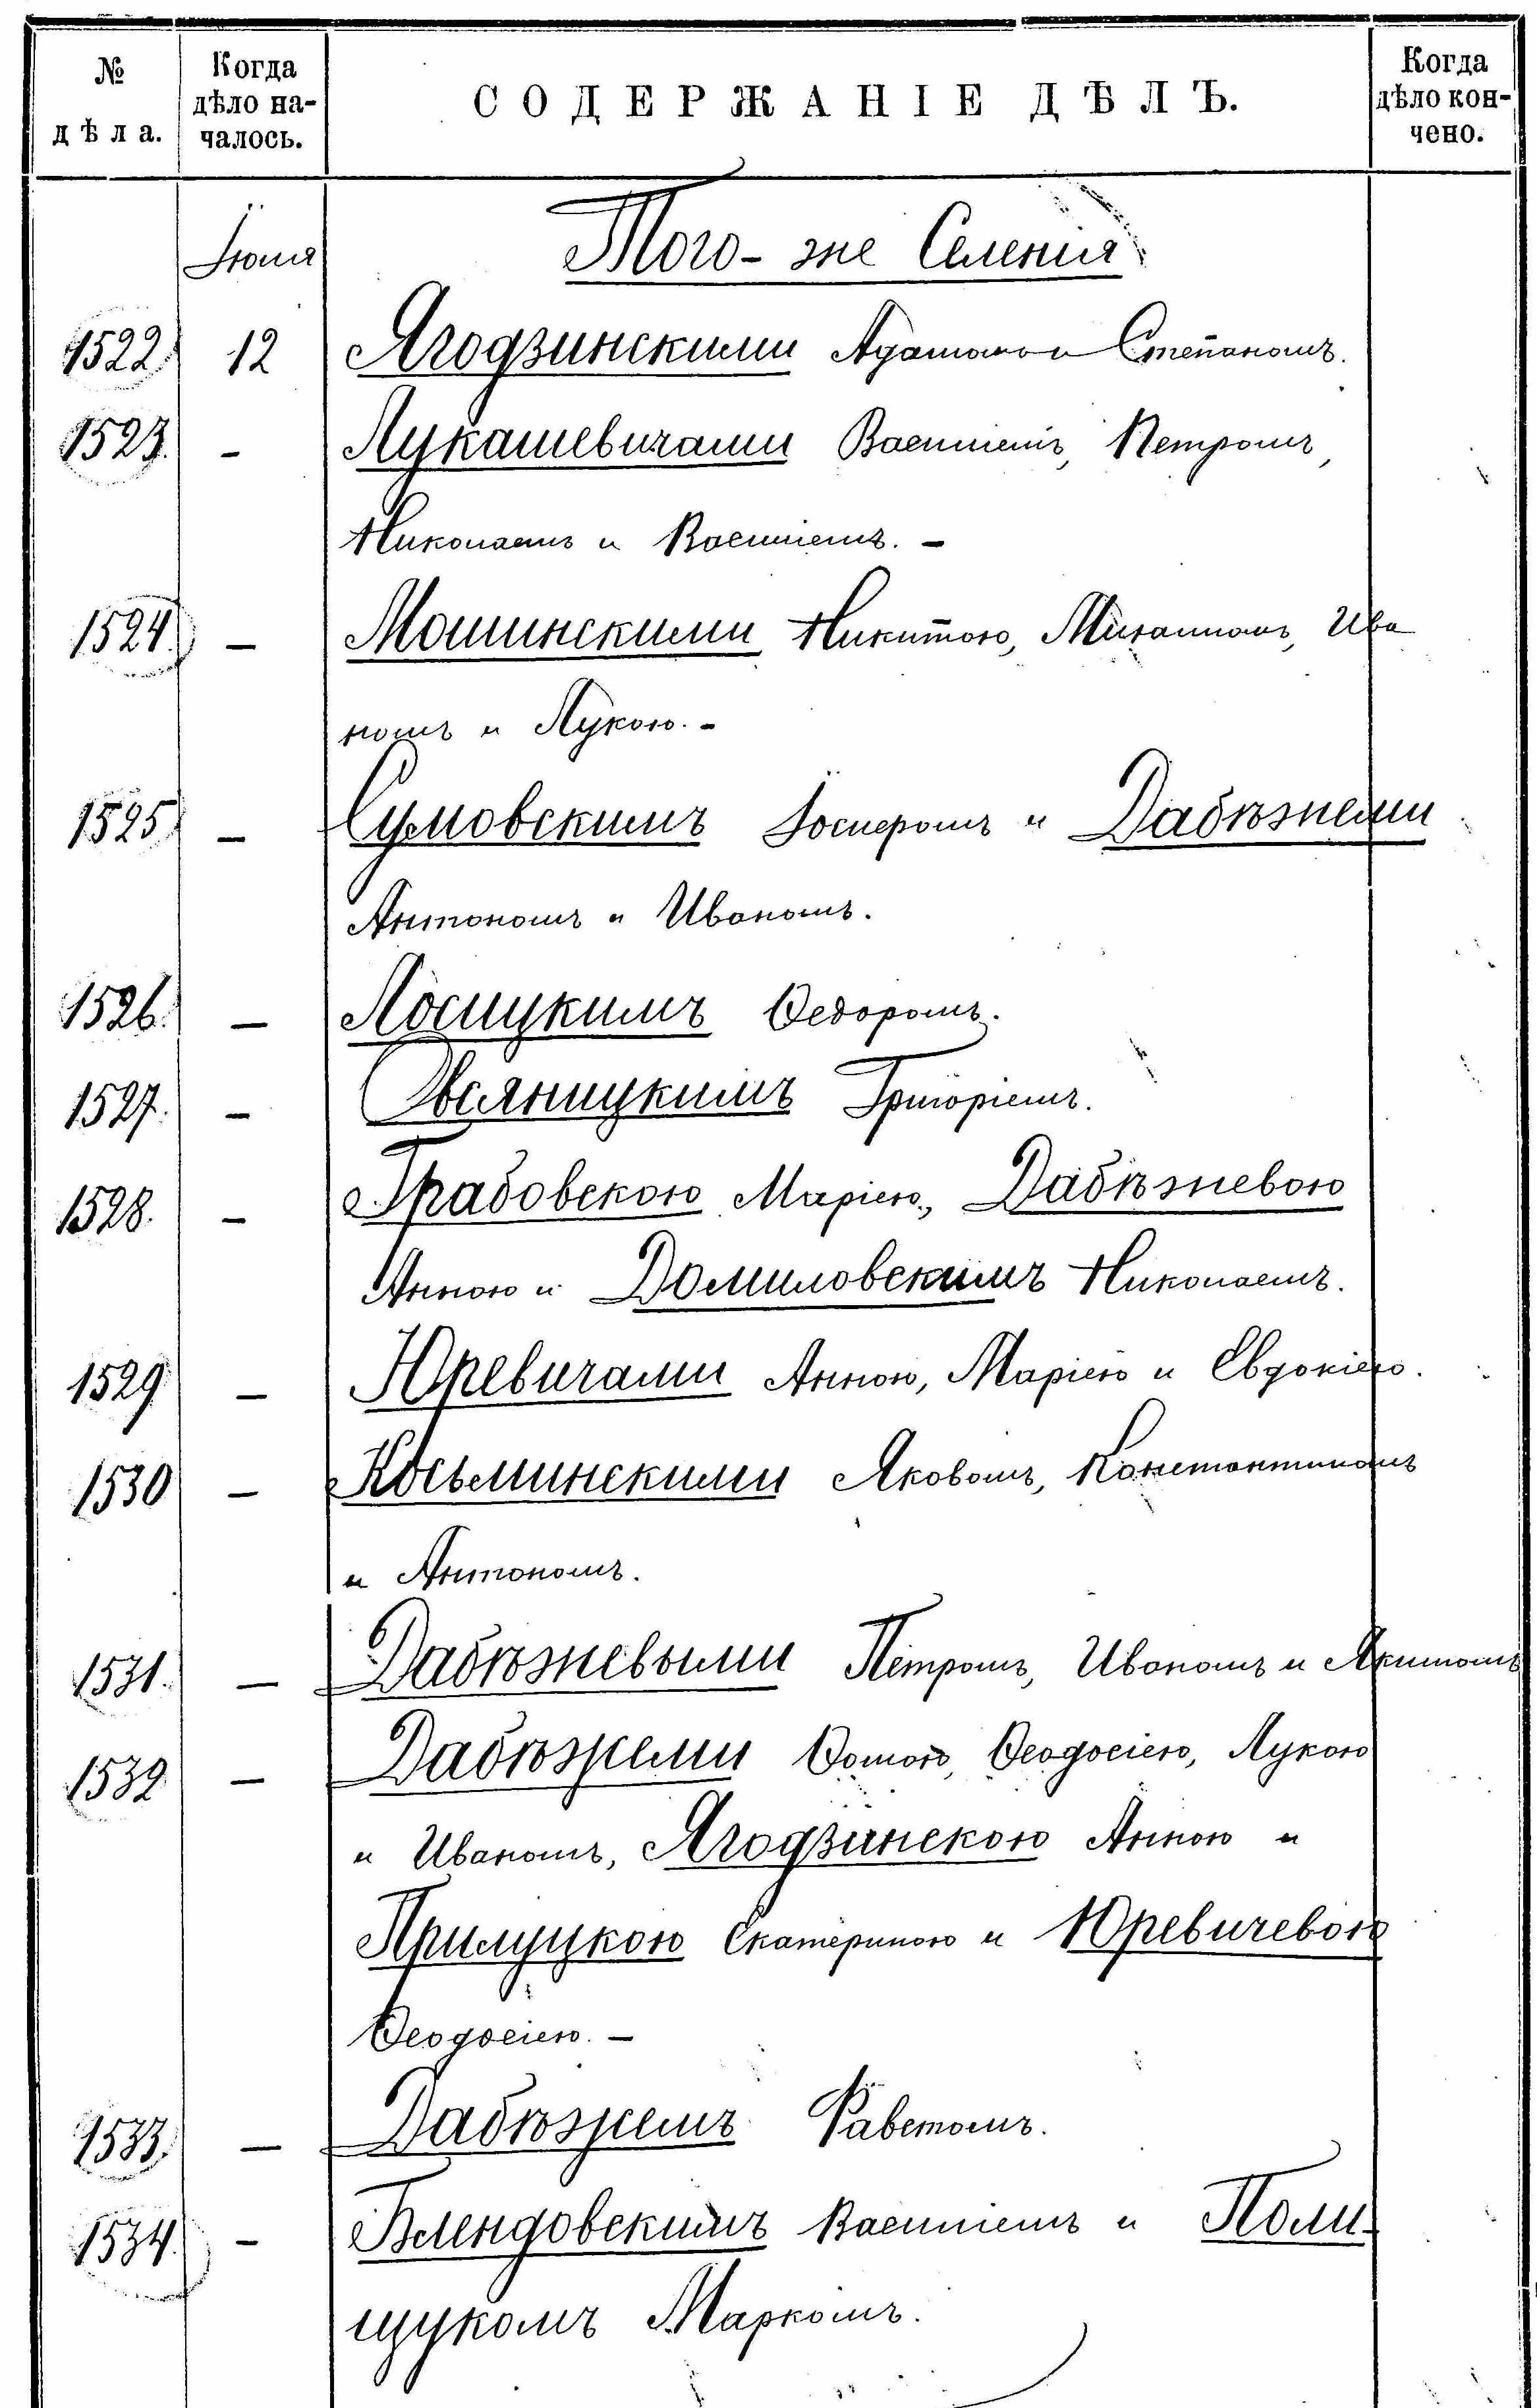 № дѣла.
Когда дѣло началось.
СОДЕРЖАНІЕ ДѢЛЪ.
Когда дѣло кончено.
Іюня
Того-же Селенія
1522. 12 Ягодзинскими Адамомъ и Степаномъ.
1523. - Лукашевичами Василіемъ, Петромъ,
Николаемъ и Василіемъ. -
1524. - Мошинскими Никитою, Михаиломъ, Ива
номъ и Лукою. -
1525 - Сумовскимъ Іосиѳомъ и Дабѣжеми
Антономъ и Иваномъ.
1526. - Лосицкимъ Ѳедоромъ.
1527. - Овсяницкимъ Григоріемъ.
1528. - Грабовскою Маріею, Дабѣжевою
Анною и Домиловскимъ Николаемъ.
1529 - Юревичами Анною, Маріею и Евдокіею.
1530 - Косьминскими Яковомъ, Константиномъ
и Антономъ.
1531. - Дабѣжевыми Петромъ, Иваномъ и Акимомъ
1532 - Дабѣжеми Ѳомою, Ѳеодосіею, Лукою
и Иваномъ, Ягодзинскою Анною и
Прилуцкою Екатериною и Юревичевою
Ѳеодосіею. -
1533. - Дабѣжемъ
1534. - Блендовскимъ Василіемъ и Поли-
щукомъ Маркомъ.